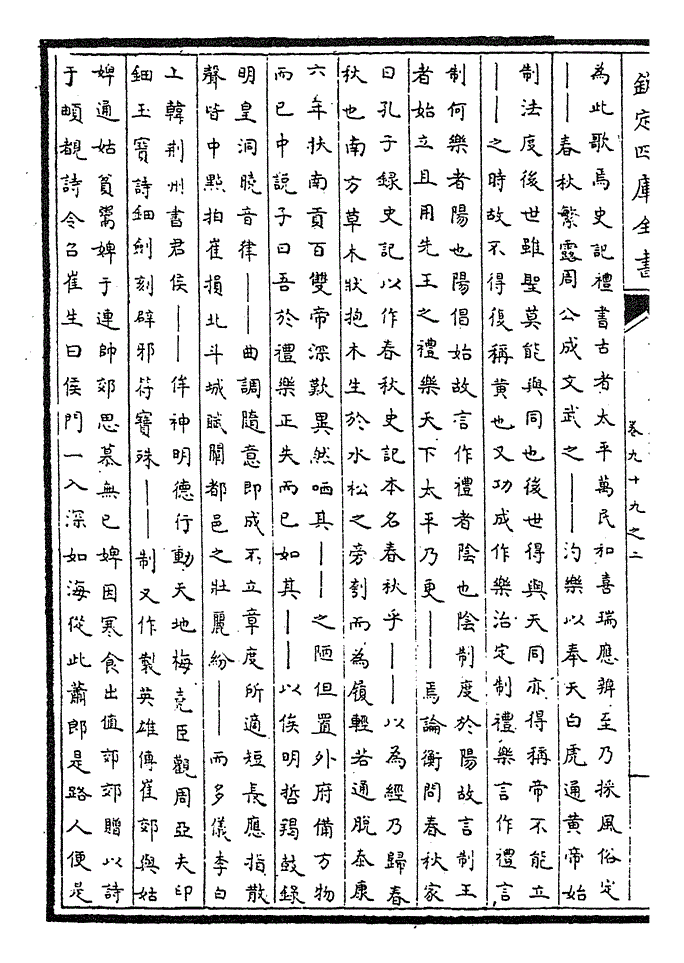 欽定四庫全書 卷九十九之二 一
為此歌焉史記禮書古者太平萬民和喜瑞應辨至乃採風俗定
——春秋繁露周公成文武之——汋樂以奉天白虎通黄帝始
制法度後世雖聖莫能與同也後世得與天同亦得稱帝不能立
——之時故不得復稱黄也又功成作樂治定制禮樂言作禮言
制何樂者陽也陽倡始故言作禮者陰也陰制度於陽故言制王
者始立且用先王之禮樂天下太平乃更——焉論衡問春秋家
曰孔子録史記以作春秋史記本名春秋乎——以為經乃歸春
秋也南方草木狀抱木生於水松之旁刳而為履輕若通脱泰康
六年扶南貢百雙帝深歎異然哂其——之陋但置外府備方物
而已中説子曰吾於禮樂正失而已如其——以俟明哲羯鼓録
明皇洞曉音律——曲調隨意即成不立章度所適短長應指散
聲皆中點拍崔損北斗城賦闢都邑之壯麗紛——而多儀李白
上韓荆州書君侯——侔神明德行動天地梅堯臣觀周亞夫印
鈿玉寶詩鈿劍刻辟邪符寶殊——制又作製英雄傳崔郊與姑
婢通姑貧鬻婢于連帥郊思慕無已婢因寒食出值郊郊贈以詩
于頔覩詩令召崔生曰侯門一入深如海從此蕭郎是路人便是